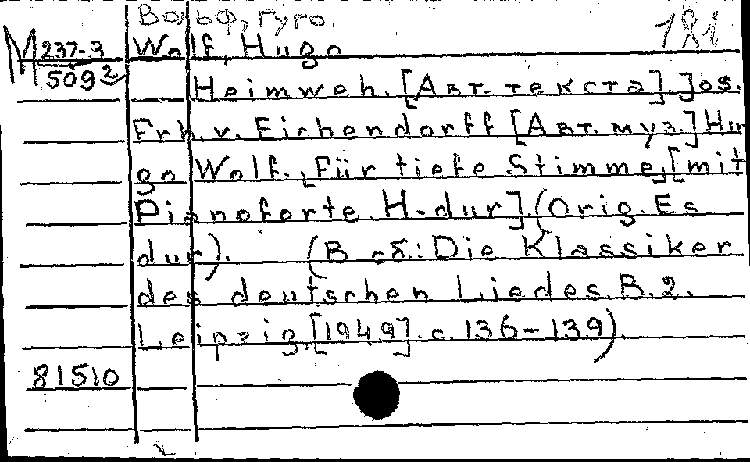 Вольф, Гуго.
181
М 237-3
509²
Wolf, Hugo
Heimweh. [Авт. текста] Jos.
Frh. v. Eichendorff [Авт. муз.] Hu-
go Wolf. Für tiefe Stimme, [mit
Pianoforte H-dur]. (Orig. Es
dur). (В сб.: Die Klassiker
des deutschen Liedes. B. 2.
Leipzig, [1949] с. 136-139).
81510